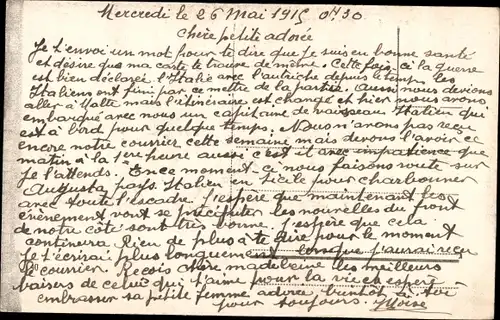 Mercredi le 26 Mai 1915 0h.30
Chère petite adorée
Je t'envoi un mot pour te dire que je suis en bonne santé
et désire que ma carte te trouve de même. Cette fois ci la guerre
est bien déclarée l'Italie avec l'autriche depuis le temps les
Italiens ont fini par ce mettre de la partie. Aussi nous devions
aller à Malte mais l'itinéraire est changé et hier nous avons
embarqué avec nous un capitaine de vaisseau Italien qui
est à bord pour quelque temps. Nous n'avons pas reçu
encore notre courrier cette semaine mais devons l'avoir ce
matin à la 1ere heure aussi c'est avec impatience que
je l'attends. En ce moment ci nous faisons route sur
Augusta pays Italien en Sicile pour charbonner
avec toute l'escadre. J'espère que maintenant les
évènement vont se précipiter les nouvelles du front
de notre côté sont très bonne. J'espère que cela
continuera. Rien de plus à te dire pour le moment
je t'écrirai plus longuement lorsque j'aurai reçu
le courrier. Reçois chère madeleine les meilleurs
baisers de celui qui t'aime pour la vie et espère
embrasser sa petite femme adorée bientôt. à toi
pour toujours.